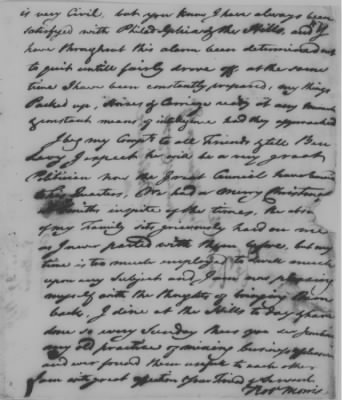 is very Civil, but you know I have always been
satisfied with Philadelphia & the Hills, and
have throughout this alarm been determined not
to quit untill fairly drove off at the same
time I have been constantly prepared, my things
Packed up, Horses & Carriage ready at any moment
& constant means of intelligence had they approached
I beg my Compts to all Friends & tell Ben
Levy I expect he will be a very great
Politician now the Great Council have
Quarters, We had a Merry Christmas
at Smiths inspite of the times, the absence
of my Family sets grievously hard on me
as I never parted with them before, but my
time is too much employed to dwell much
upon any Subject and I am now pleasing
myself with the thoughts of bringing them
back, I dine at the Hills to day & have
done so every Sunday thus you see I continue
my old practice of mixing business & pleasure
and ever found them useful to each other
I am with great affection Your Friend & Servant
Robt Morris